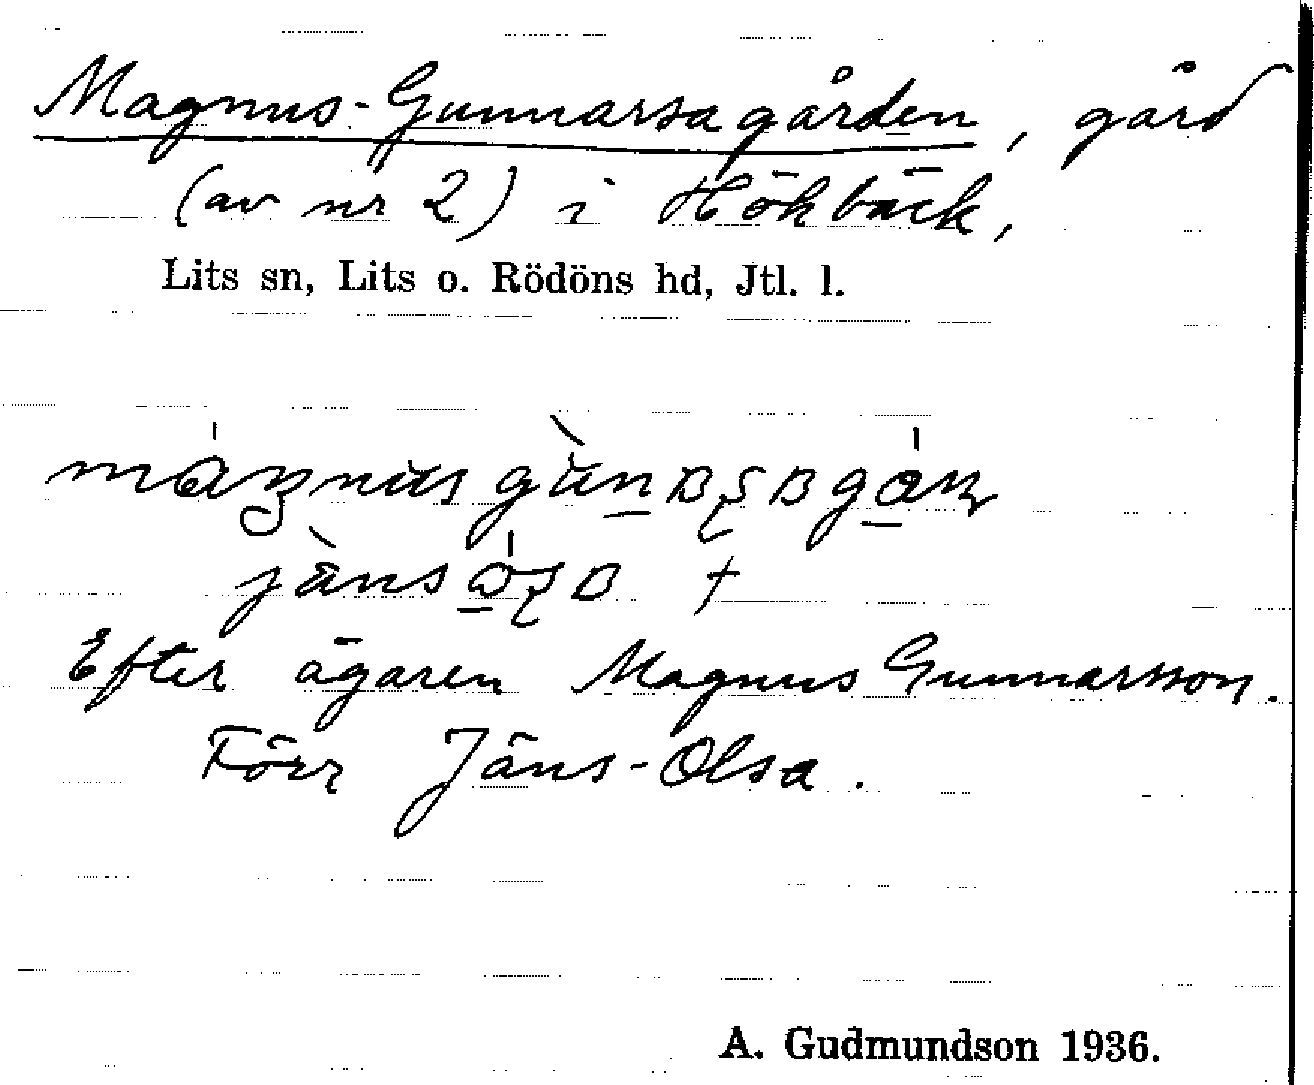 Magnus-Gunnarsagården, gård
(av nr 2) i Hökbäck,
Lits sn, Lits o. Rödöns hd, Jtl. l.
Efter ägaren Magnus Gunnarsson.
Förr Jäns-Olsa.
A. Gudmundson 1936.